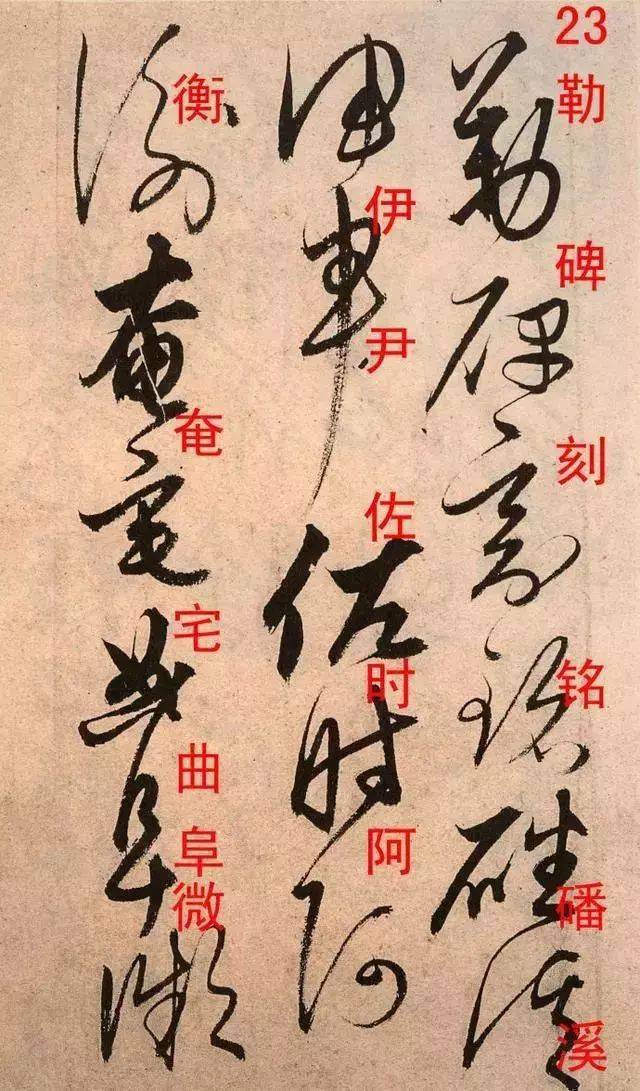 23
勒碑刻铭磻溪
伊尹佐时阿
衡奄宅曲阜微